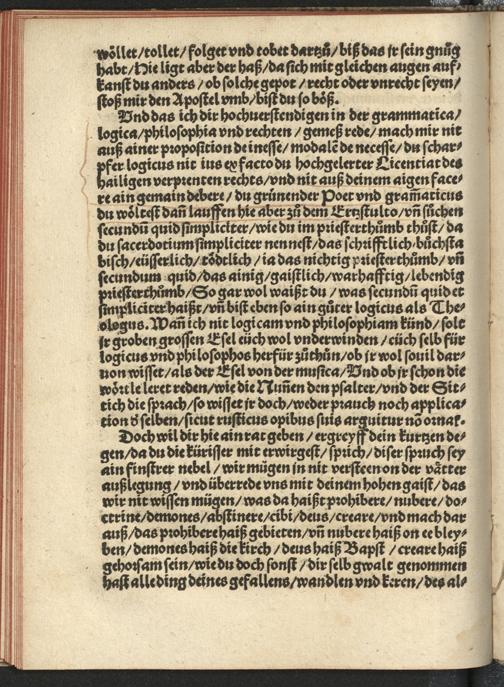 wöllet/tollet/folget vnd tobet dartzů/biß das jr sein gnůg
habt/Hie ligt aber der haß/da sich mit gleichen augen auf/
kanst du anders/ob solche gepot/recht oder vnrecht seyen/
stoß mir den Apostel vmb/bist du so böß.
Vnd das ich dir hochuerstendigen in der grammatica/
logica/philosophia vnd rechten/gemeß rede/mach mir nit
auß ainer proposition de inesse/modalē de necesse/du schar-
pfer logicus nit ius ex facto du hochgelerter Licentiat des
hailigen verprenten rechts/vnd nit auß deinem aigen face-
re ain gemain debere/du grünender Poet vnd gram̄aticus
du wöltest dan̄ lauffen hie aber zů dem Ertzstulto/vn̄ sůchen
secundū quid simpliciter/wie du im priesterthůmb thůst/da
du sacerdotium simpliciter nennest/das schrifftlich/bůchsta
bisch/eüsserlich/tödtlich/ia das nichtig priesterthůmb/vn̄
secundum quid/das ainig/gaistlich/warhafftig/lebendig
priesterthůmb/So gar wol waißt du/was secundū quid et
simpliciter haißt/vn̄ bist eben so ain gůter logicus als The-
ologus. Wan̄ ich nit logicam vnd philosophiam künd/solt
jr groben grossen Esel eüch wol vnderwinden/eüch selb für
logicus vnd philosophos herfür zůthůn/ob jr wol souil dar-
uon wisset/als der Esel von der musica/Vnd ob jr schon die
wörtle leret reden/wie die Nun̄en den psalter/vnd der Sit-
tich die sprach/so wisset jr doch/weder prauch noch applica-
tion d̓ selben/sicut rusticus opibus suis arguitur nō ornat.
Doch wil dir hie ain rat geben/ergreyff dein kurtzen de-
gen/da du die kürisser mit erwirgest/sprich/diser spruch sey
ain finstrer nebel/wir mügen jn nit versteen on der vätter
außlegung/vnd überrede vns mit deinem hohen gaist/das
wir nit wissen mügen/was da haißt prohibere/nubere/do-
ctrine/demones/abstinere/cibi/deus/creare/vnd mach dar
auß/das prohibere haiß gebieten/vn̄ nubere haiß on ee bley-
ben/demones haiß die kirch/deus haiß Bapst/creare haiß
gehorsam sein/wie du doch sonst/dir selb gwalt genommen
hast alle ding deines gefallens/wandlen vnd keren/des al-